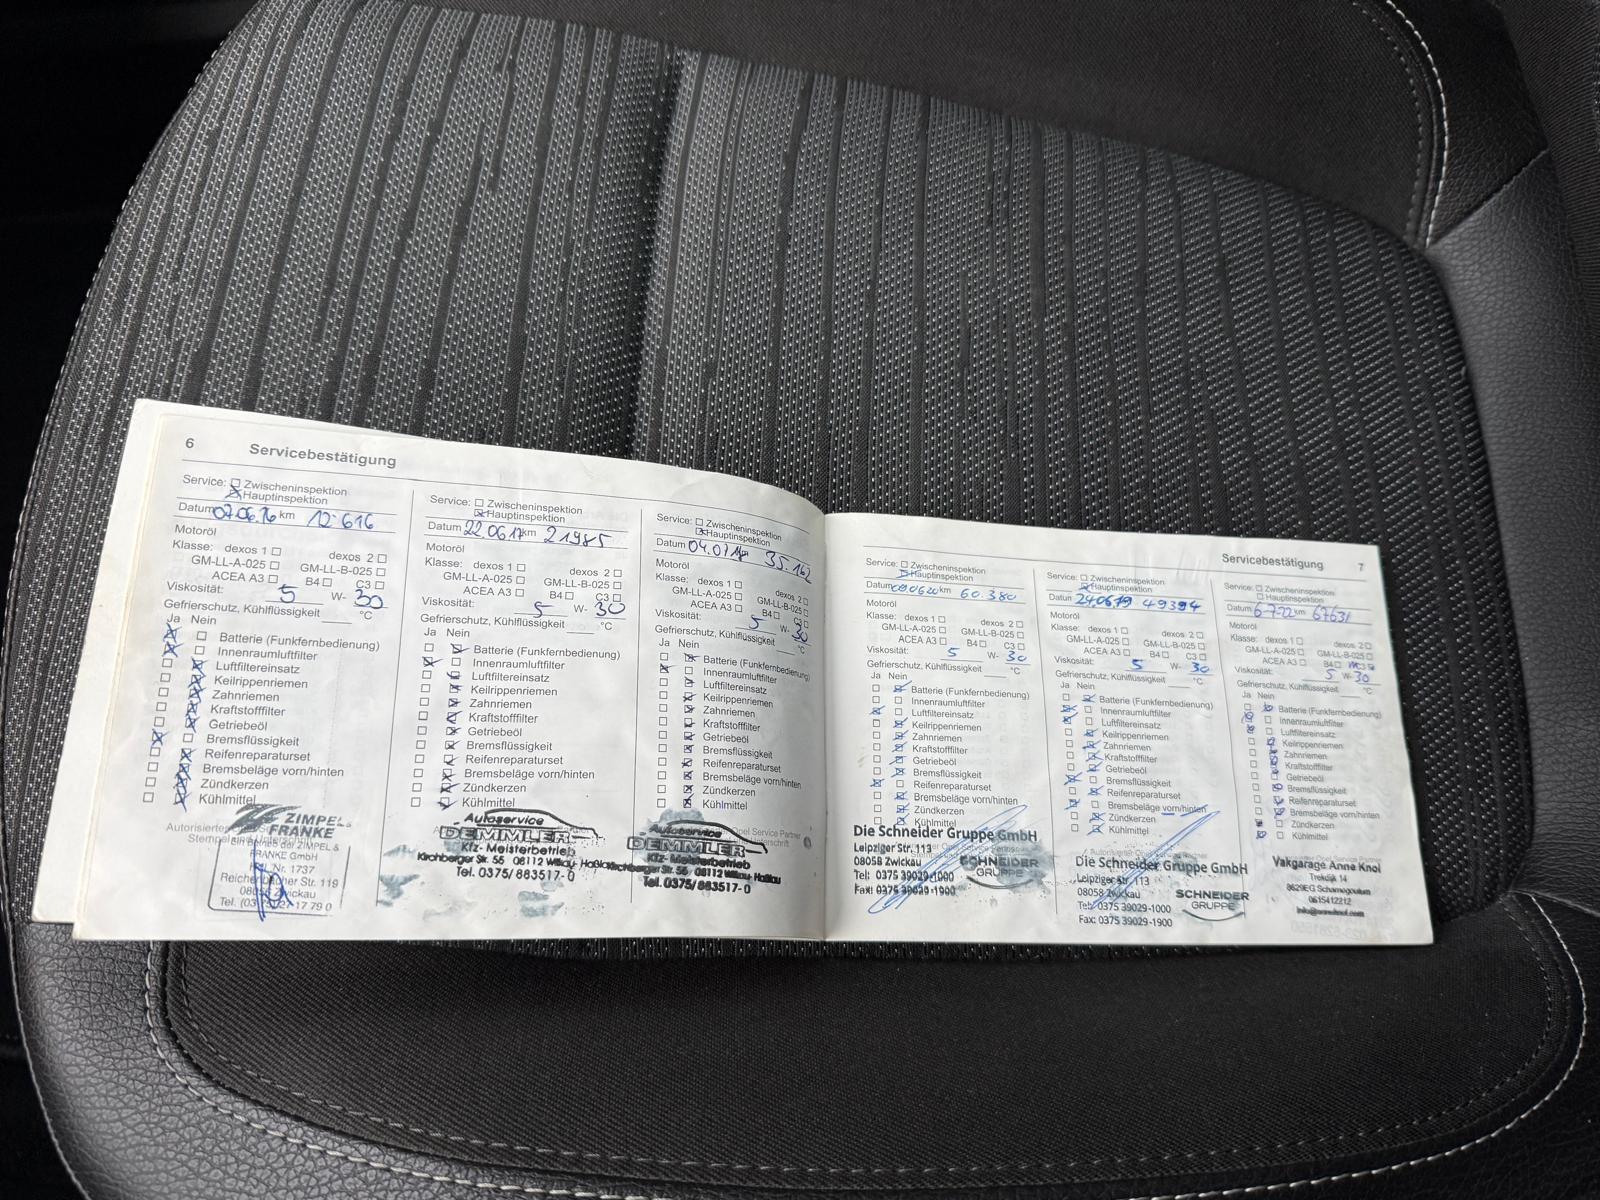 6 Servicebestätigung
Service: Zwischeninspektion
Hauptinspektion
Datum 07.06.16 km 12 616
Motoröl
Klasse: dexos 1 dexos 2
GM-LL-A-025 GM-LL-B-025
ACEA A3 B4 C3
Viskosität: 5 W- 30
Gefrierschutz, Kühlflüssigkeit °C
Ja Nein
Batterie (Funkfernbedienung)
Innenraumluftfilter
Luftfiltereinsatz
Keilrippenriemen
Zahnriemen
Kraftstofffilter
Getriebeöl
Bremsflüssigkeit
Reifenreparaturset
Bremsbeläge vorn/hinten
Zündkerzen
Kühlmittel
ZIMPEL
FRANKE
Ein Betrieb der ZIMPEL &
FRANKE GmbH
Nr. 1737
Reichenbacher Str. 119
Zwickau
Service: Zwischeninspektion
Hauptinspektion
Datum 22.06.17 km 21985
Motoröl
Klasse: dexos 1 dexos 2
GM-LL-A-025 GM-LL-B-025
ACEA A3 B4 C3
Viskosität: 5 W- 30
Gefrierschutz, Kühlflüssigkeit °C
Ja Nein
Batterie (Funkfernbedienung)
Innenraumluftfilter
Luftfiltereinsatz
Keilrippenriemen
Zahnriemen
Kraftstofffilter
Getriebeöl
Bremsflüssigkeit
Reifenreparaturset
Bremsbeläge vorn/hinten
Zündkerzen
Kühlmittel
Autoservice
DEMMLER
Kfz- Meisterbetrieb
Kirchberger Str. 55 08112 Wilkau- Haßlau
Tel. 0375/ 883517- 0
Service: Zwischeninspektion
Hauptinspektion
Datum km 35.162
Motoröl
Klasse: dexos 1 dexos 2
GM-LL-A-025 GM-LL-B-025
ACEA A3 B4 C3
Viskosität: 5 W- 30
Gefrierschutz, Kühlflüssigkeit °C
Ja Nein
Batterie (Funkfernbedienung)
Innenraumluftfilter
Luftfiltereinsatz
Keilrippenriemen
Zahnriemen
Kraftstofffilter
Getriebeöl
Bremsflüssigkeit
Reifenreparaturset
Bremsbeläge vorn/hinten
Zündkerzen
Kühlmittel
Autoservice
DEMMLER
Kfz- Meisterbetrieb
Kirchberger Str. 55 08112 Wilkau- Haßlau
Tel. 0375/ 883517- 0
Servicebestätigung 7
Service: Zwischeninspektion
Hauptinspektion
Datum 090620 km 60.380
Motoröl
Klasse: dexos 1 dexos 2
GM-LL-A-025 GM-LL-B-025
ACEA A3 B4 C3
Viskosität: 5 W- 30
Gefrierschutz, Kühlflüssigkeit °C
Ja Nein
Batterie (Funkfernbedienung)
Innenraumluftfilter
Luftfiltereinsatz
Keilrippenriemen
Zahnriemen
Kraftstofffilter
Getriebeöl
Bremsflüssigkeit
Reifenreparaturset
Bremsbeläge vorn/hinten
Zündkerzen
Kühlmittel
Die Schneider Gruppe GmbH
Leipziger Str. 113
08058 Zwickau
Tel: 0375 39029-1000
Fax: 0375 39029-1900
SCHNEIDER
GRUPPE
Service: Zwischeninspektion
Hauptinspektion
Datum 240619 49394
Motoröl
Klasse: dexos 1 dexos 2
GM-LL-A-025 GM-LL-B-025
ACEA A3 B4 C3
Viskosität: 5 W- 30
Gefrierschutz, Kühlflüssigkeit °C
Ja Nein
Batterie (Funkfernbedienung)
Innenraumluftfilter
Luftfiltereinsatz
Keilrippenriemen
Zahnriemen
Kraftstofffilter
Getriebeöl
Bremsflüssigkeit
Reifenreparaturset
Bremsbeläge vorn/hinten
Zündkerzen
Kühlmittel
Die Schneider Gruppe GmbH
Leipziger Str. 113
08058 Zwickau
Tel: 0375 39029-1000
Fax: 0375 39029-1900
SCHNEIDER
GRUPPE
Service: Zwischeninspektion
Hauptinspektion
Datum 6-7-22 km 67631
Motoröl
Klasse: dexos 1 dexos 2
GM-LL-A-025 GM-LL-B-025
ACEA A3 B4 C3
Viskosität: 5 W- 30
Gefrierschutz, Kühlflüssigkeit °C
Ja Nein
Batterie (Funkfernbedienung)
Innenraumluftfilter
Luftfiltereinsatz
Keilrippenriemen
Zahnriemen
Kraftstofffilter
Getriebeöl
Bremsflüssigkeit
Reifenreparaturset
Bremsbeläge vorn/hinten
Zündkerzen
Kühlmittel
Vakgarage Anne Knol
Trekdijk 14
0615412212